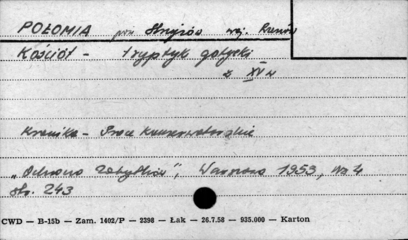 POŁOMIA pow. Strzyżów woj. Rzeszów
Kościół - tryptyk gotycki
z XV w
Kronika - Prace Konserwatorskie
"Ochrona Zabytków", Warszawa 1953, nr. 4
str. 243
CWD — B-15b — Zam. 1402/P — 2398 — Łak — 26.7.58 — 935.000 — Karton